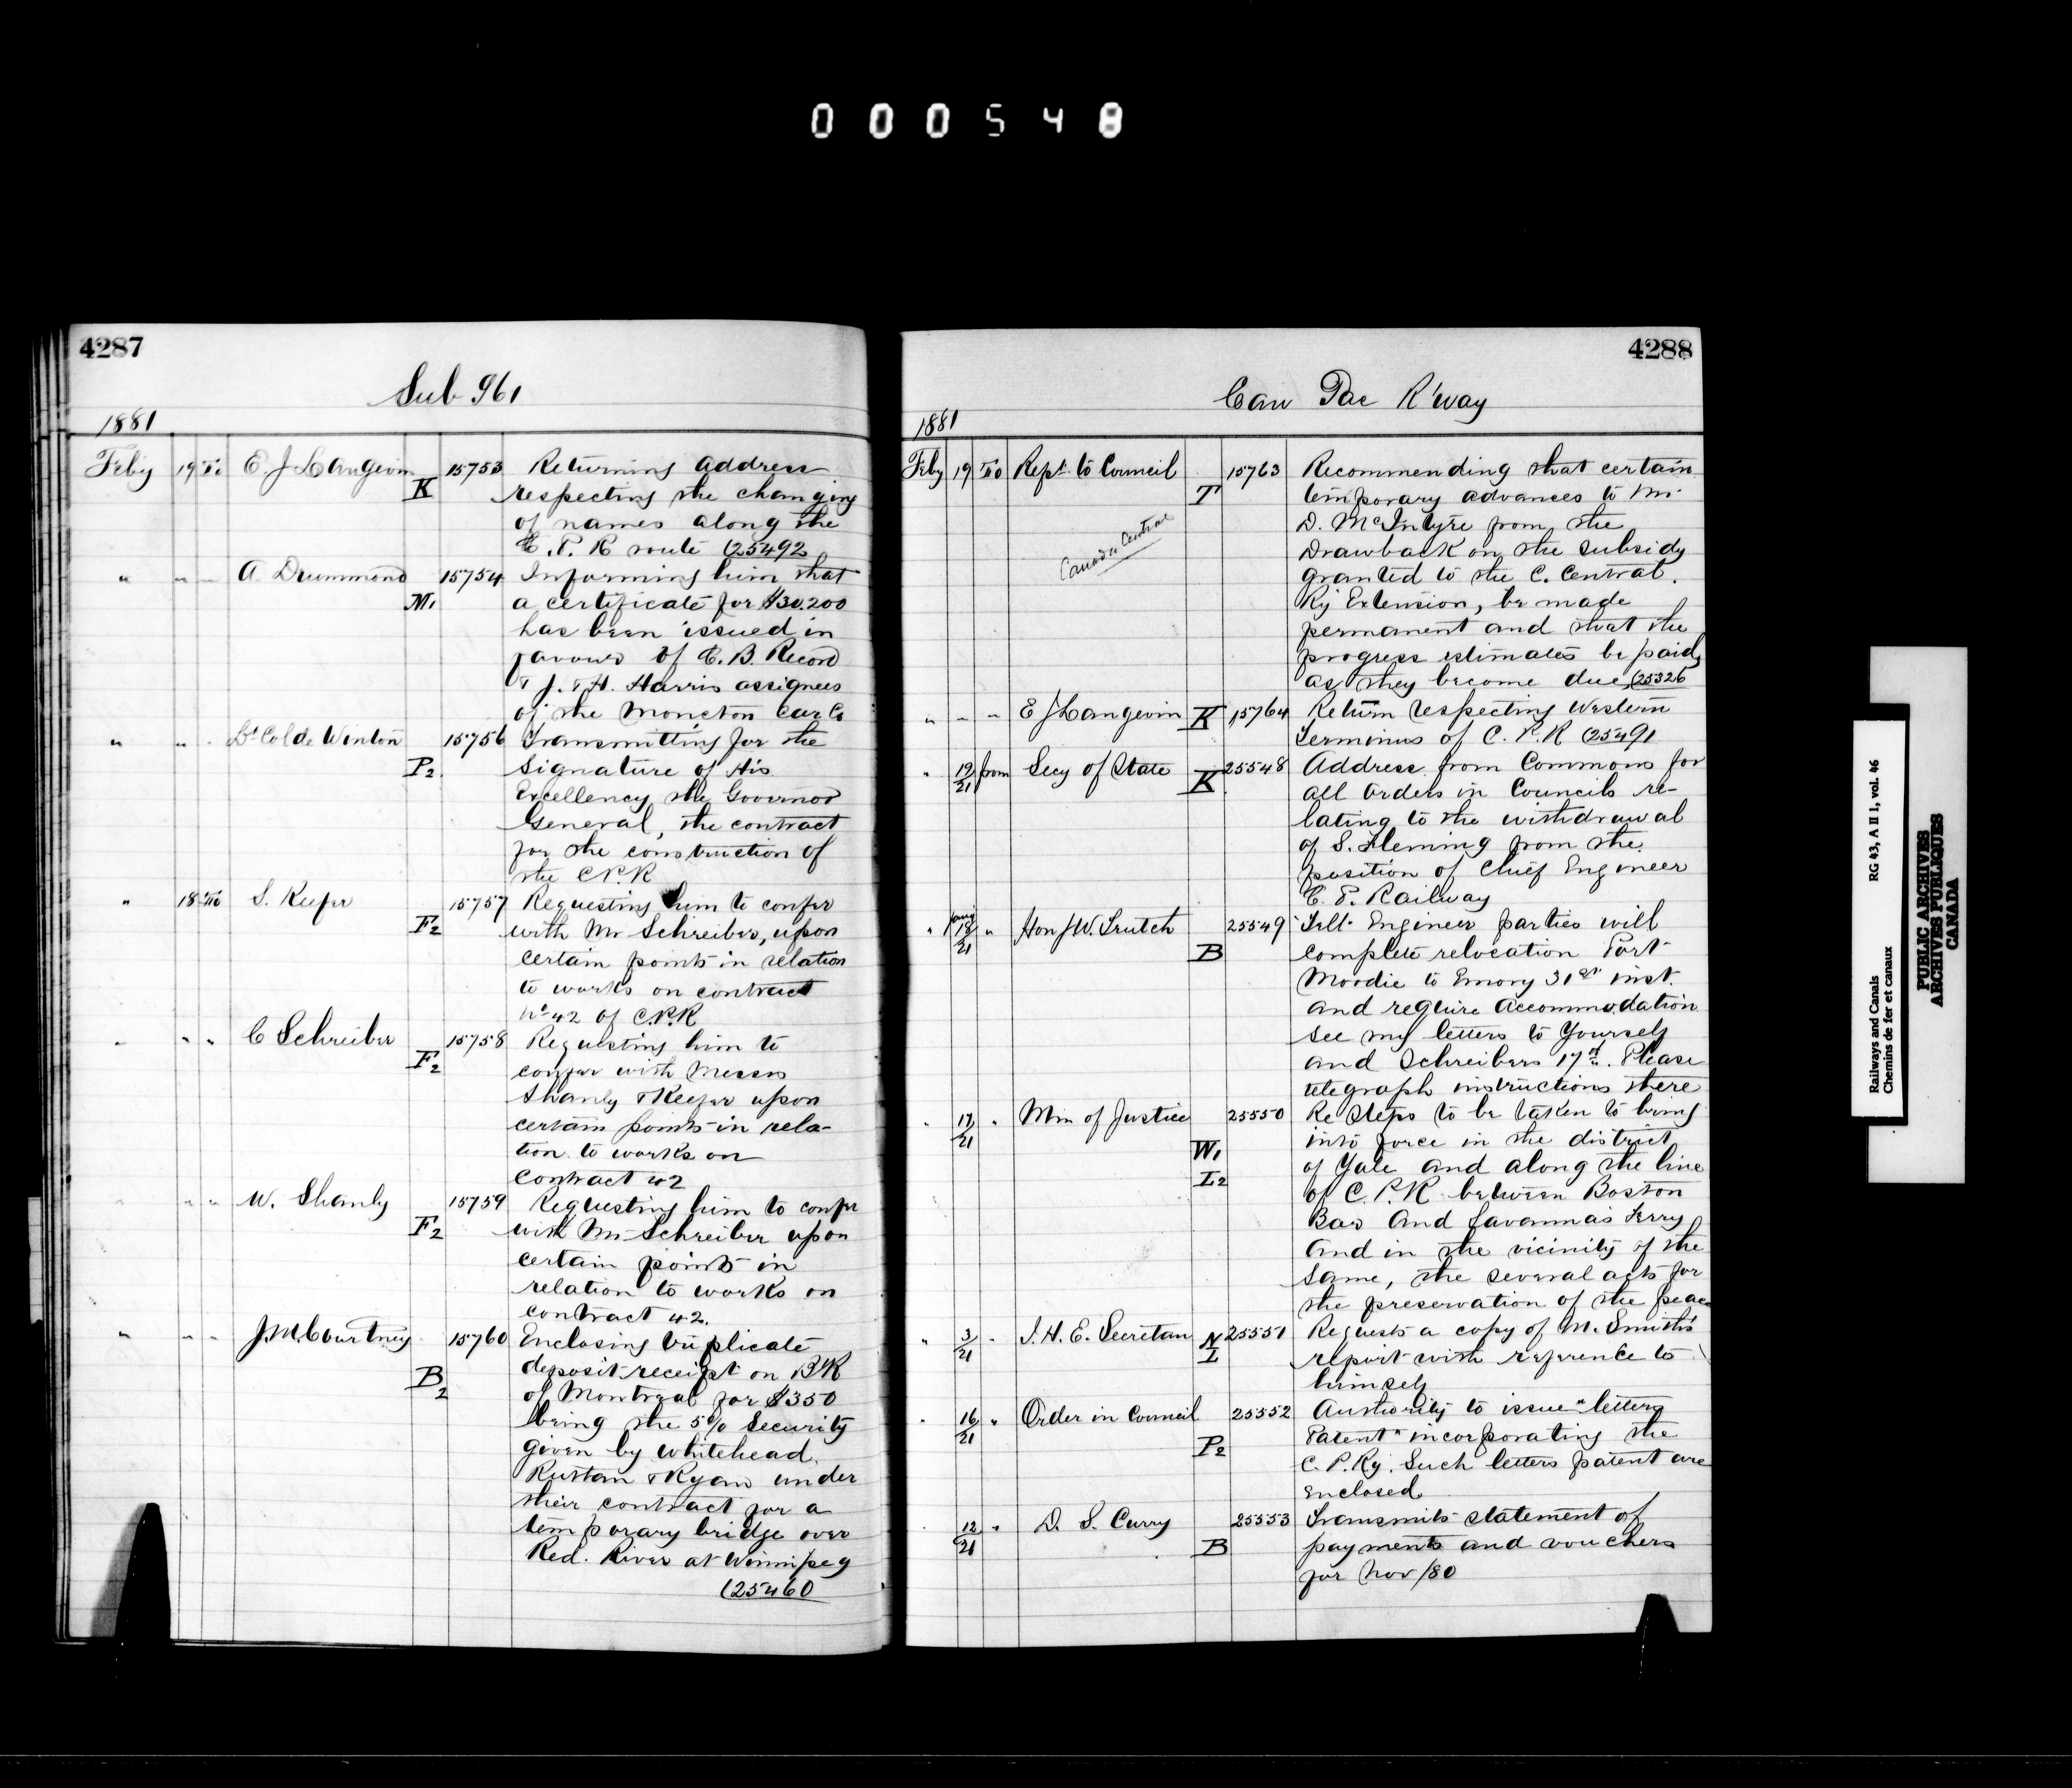 000548
4287
Sub 961
1881
Feby 19 To E. J Langevin K 15753 Returning address
respecting the changing
of names along the
C. P. R route (25492
" " " A. Drummond M1 15754 Informing him that
a certificate for $30.200
has been issued in
favour of C. B. Record
& J. & H. Harris assignees
of the Moncton Car Co
" " " Lt Col de Winton P2 15756 Transmitting for the
signature of His
Excellency the Governor
General, the contract
for the construction of
the C.P.R
" 18 To S. Keefer F2 15757 Requesting him to confer
with Mr Schreiber, upon
certain points in relation
to works on contract
No 42 of C.P.R
" " " C Schreiber F2 15758 Requesting him to
confer with Messrs
Shanly & Keefer upon
certain points in rela-
tion to works on
Contract 42
" " " W. Shanly F2 15759 Requesting him to confer
with Mr Schreiber upon
certain points in
relation to works on
contract 42.
" " " J. M. Courtney B2 15760 Enclosing duplicate
deposit receipt on Bk
of Montreal for $350
being the 5% security
given by Whitehead
Ruttan & Ryan under
their contract for a
temporary bridge over
Red. River at Winnipeg
(25460
4288
Can Pac R'way
1881
Feby 19 To Rept. to Council T 15763 Recommending that certain
temporary advances to Mr
D. McIntyre from the
Drawback on the subsidy
granted to the C. Central.
Ry Extension, be made
permanent and that the
progress estimates be paid
as they become due, (25326
Canada Central
" " " E J Langevin K 15764 Return respecting Western
Terminus of C. P. R (25491
" 19/21 from Secy of State K 25548 Address from Commons for
all Orders in Councils re-
lating to the withdrawal
of S. Fleming from the
position of Chief Engineer
C. P. Railway
" Jany 18/21 " Hon J W. Trutch B 25549 Tell. Engineer parties will
complete relocation Port
Moodie to Emory 31st inst.
and require Accommodation
see my letters to Yourself
and Schreibers 17th. Please
telegraph instructions there
" 17/21 " Min of Justice W1 I2 25550 Re Steps to be taken to bring
into force in the district
of Yale and along the line
of C. P. R between Boston
Bar and Savanna's Ferry
and in the vicinity of the
same, the several acts for
the preservation of the peace
" 3/21 " J. H. E. Secretan N I 25551 Requests a copy of M. Smith's
report with reference to
himself
" 16/21 " Order in Council P2 25552 Authority to issue "letters
Patent" incorporating the
C. P. Ry. Such letters patent are
enclosed
" 12/21 " D. S. Curry B 25553 Transmits statement of
payments and vouchers
for Nov /80
Railways and Canals RG 43, A II 1, vol. 46
Chemins de fer et canaux
PUBLIC ARCHIVES
ARCHIVES PUBLIQUES
CANADA